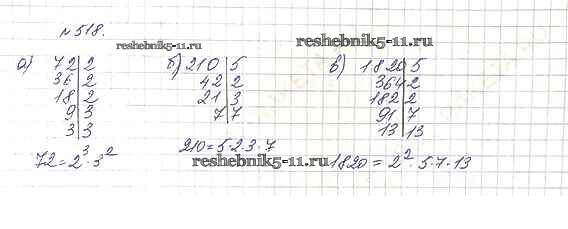 №518.
reshebnik5-11.ru
reshebnik5-11.ru
а) 72|2
36|2
18|2
9|3
3|3
72=2³·3²
б) 210|5
42|2
21|3
7|7
210=5·2·3·7
в) 1820|5
364|2
182|2
91|7
13|13
1820=2²·5·7·13
reshebnik5-11.ru